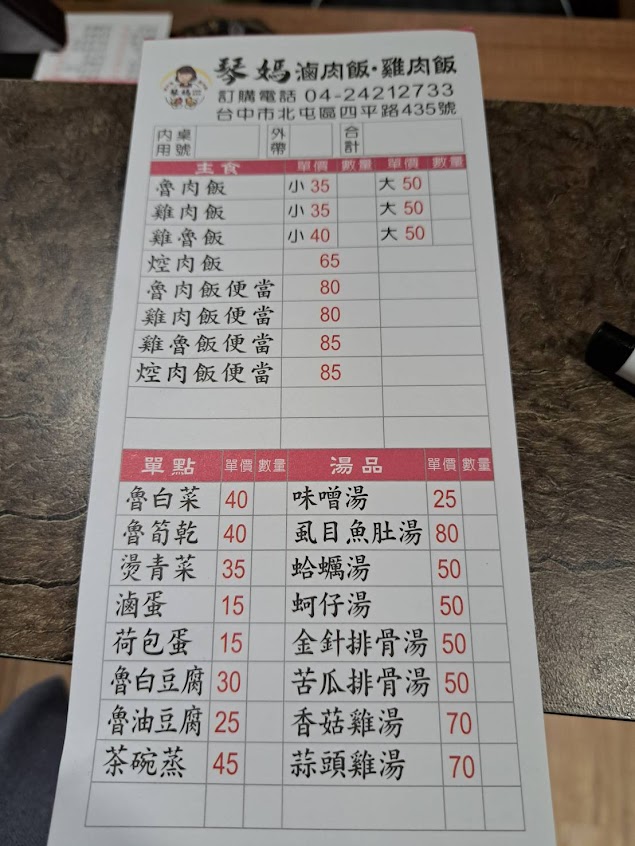 琴媽滷肉飯·雞肉飯
訂購電話 04-24212733
台中市北屯區四平路435號
內用 桌號 外帶 合計
主食 單價 數量 單價 數量
魯肉飯 小 35 大 50
雞肉飯 小 35 大 50
雞魯飯 小 40 大 50
焢肉飯 65
魯肉飯便當 80
雞肉飯便當 80
雞魯飯便當 85
焢肉飯便當 85
單點 單價 數量 湯品 單價 數量
魯白菜 40 味噌湯 25
魯筍乾 40 虱目魚肚湯 80
燙青菜 35 蛤蠣湯 50
滷蛋 15 蚵仔湯 50
荷包蛋 15 金針排骨湯 50
魯白豆腐 30 苦瓜排骨湯 50
魯油豆腐 25 香菇雞湯 70
茶碗蒸 45 蒜頭雞湯 70